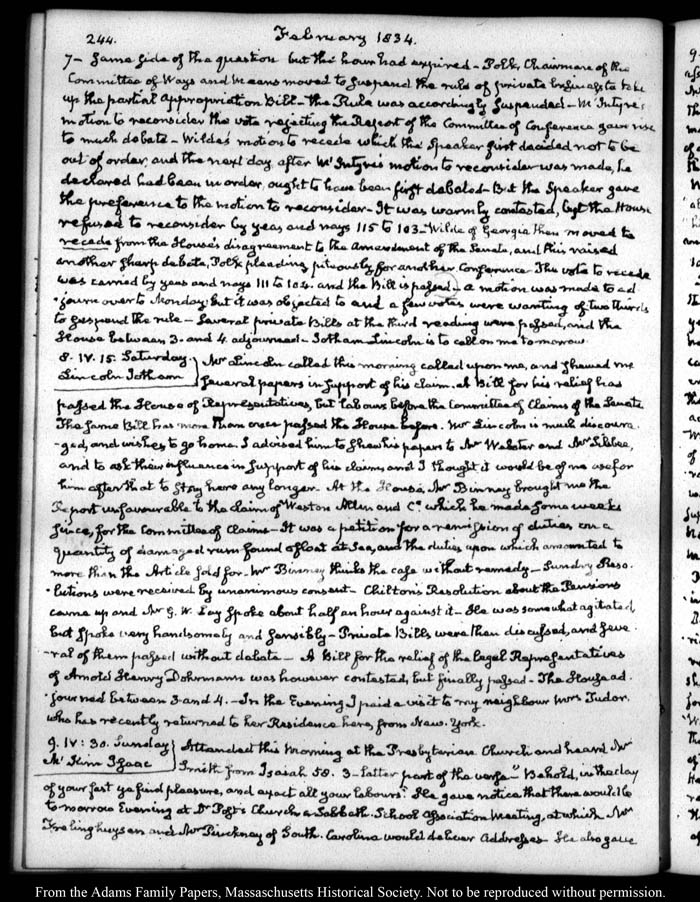 244. February 1834.
7— same side of the question but the hour had expired — Polk, Chairman of the
Committee of Ways and Means moved to suspend the rule of private business to take
up the partial Appropriation Bill — the Rule was accordingly suspended — McIntyre's
motion to reconsider the vote rejecting the Report of the Committee of Conference gave rise
to much debate — Wilde's motion to recede which the Speaker first decided not to be
out of order, and the next day after McIntyre's motion to reconsider was made, he
declared had been in order, ought to have been first debated — But the Speaker gave
the preference to the motion to reconsider — It was warmly contested, but the House
refused to reconsider by yeas and nays 115 to 103 — Wilde of Georgia then moved to
recede from the House's disagreement to the Amendment of the Senate, and this raised
another sharp debate, Polk pleading piteously for another Conference — The vote to recede
was carried by yeas and nays 111 to 104. and the Bill is passed — a motion was made to ad-
-journ over to Monday but it was objected to and a few votes were wanting of two thirds
to suspend the rule — Several private Bills at the third reading were passed, and the
House between 3. and 4 adjourned — Jotham Lincoln is to call on me tomorrow.
8. IV. 15. Saturday. Mr Lincoln called this morning called upon me, and shewed me
Lincoln Jotham several papers in support of his claim. A Bill for his relief has
passed the House of Representatives, but labours before the Committee of Claims of the Senate
The same Bill has more than once passed the House before. Mr Lincoln is much discoura-
-ged, and wishes to go home. I advised him to shew his papers to Mr Webster and Mr Silsbee,
and to ask their influence in support of his claim, and I thought it would be of no use for
him after that to stay here any longer. At the House, Mr Binney brought me the
Report unfavourable to the claim of Weston Allen and Co. which he made some weeks
since, for the Committee of Claims — It was a petition for a remission of duties, on a
quantity of damaged rum found afloat at Sea, and the duties upon which amounted to
more than the Article sold for — Mr Binney thinks the case without remedy — Sundry Reso-
-lutions were received by unanimous consent — Chilton's Resolution about the Pensions
came up and Mr G. W. Lay spoke about half an hour against it — He was somewhat agitated,
but spoke very handsomely and sensibly — Private Bills were then discussed, and seve-
-ral of them passed without debate — A Bill for the relief of the legal Representatives
of Arnold Henry Dohrmann was however contested, but finally passed — The House ad-
-journed between 3 and 4. — In the Evening I paid a visit to my neighbour Mrs Tudor,
who has recently returned to her Residence here, from New-York.
9. IV: 30. Sunday Attended this Morning at the Presbyterian Church and heard Mr
McKim Isaac Smith from Isaiah 58. 3 — latter part of the verse "Behold, in the day
of your fast ye find pleasure, and exact all your labours." He gave notice that there would be
to morrow Evening at Dr Post's Church a Sabbath-School Association Meeting, at which Mr
Frelinghuysen and Mr Pinckney of South-Carolina would deliver Addresses He also gave
From the Adams Family Papers, Massachusetts Historical Society. Not to be reproduced without permission.